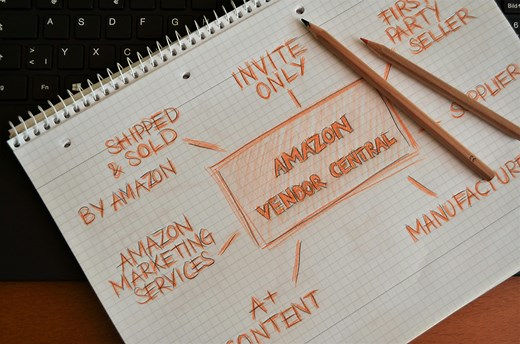 INVITE
ONLY
FIRST
PARTY
SELLER
SHIPPED
& SOLD
BY AMAZON
AMAZON
VENDOR CENTRAL
SUPPLIER
MANUFACTURE
AMAZON
MARKETING
SERVICES
A+
CONTENT